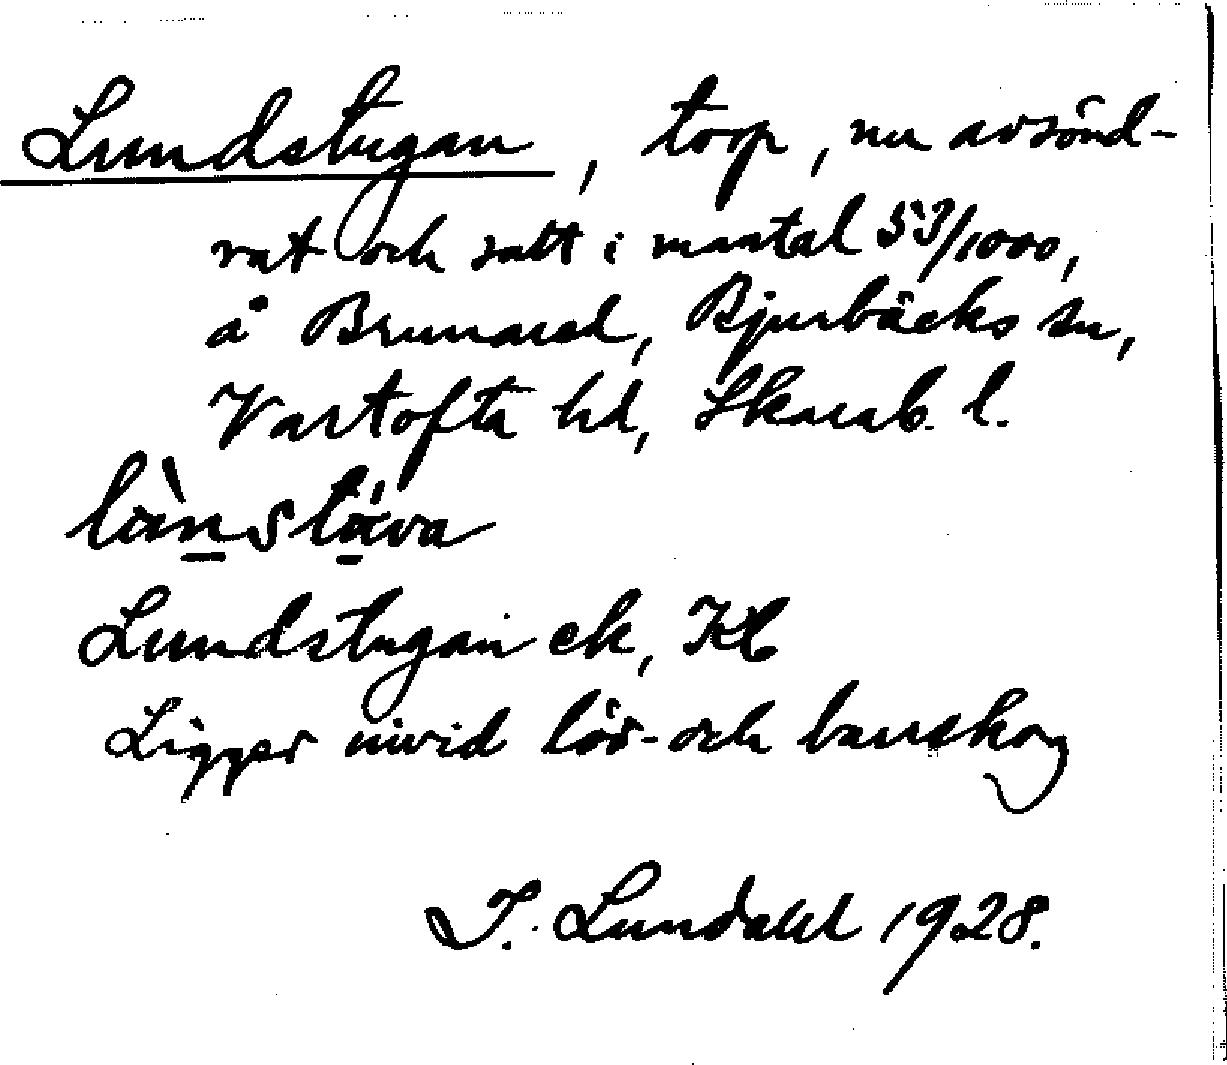 Lundstugan, torp, nu avsönd-
rat och satt i mantal 53/1000,
å Brunared, Bjurbäcks sn,
Vartofta hd, Skarab. l.
Lundstugan ek, Kb
Ligger invid löv- och barrskog
I. Lundahl 1928.